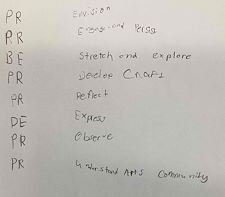 PR Envision
PR Engage and Persist
BE Stretch and explore
PR Develop Crafts
PR Reflect
DE Express
PR Observe
PR Understand Arts Community